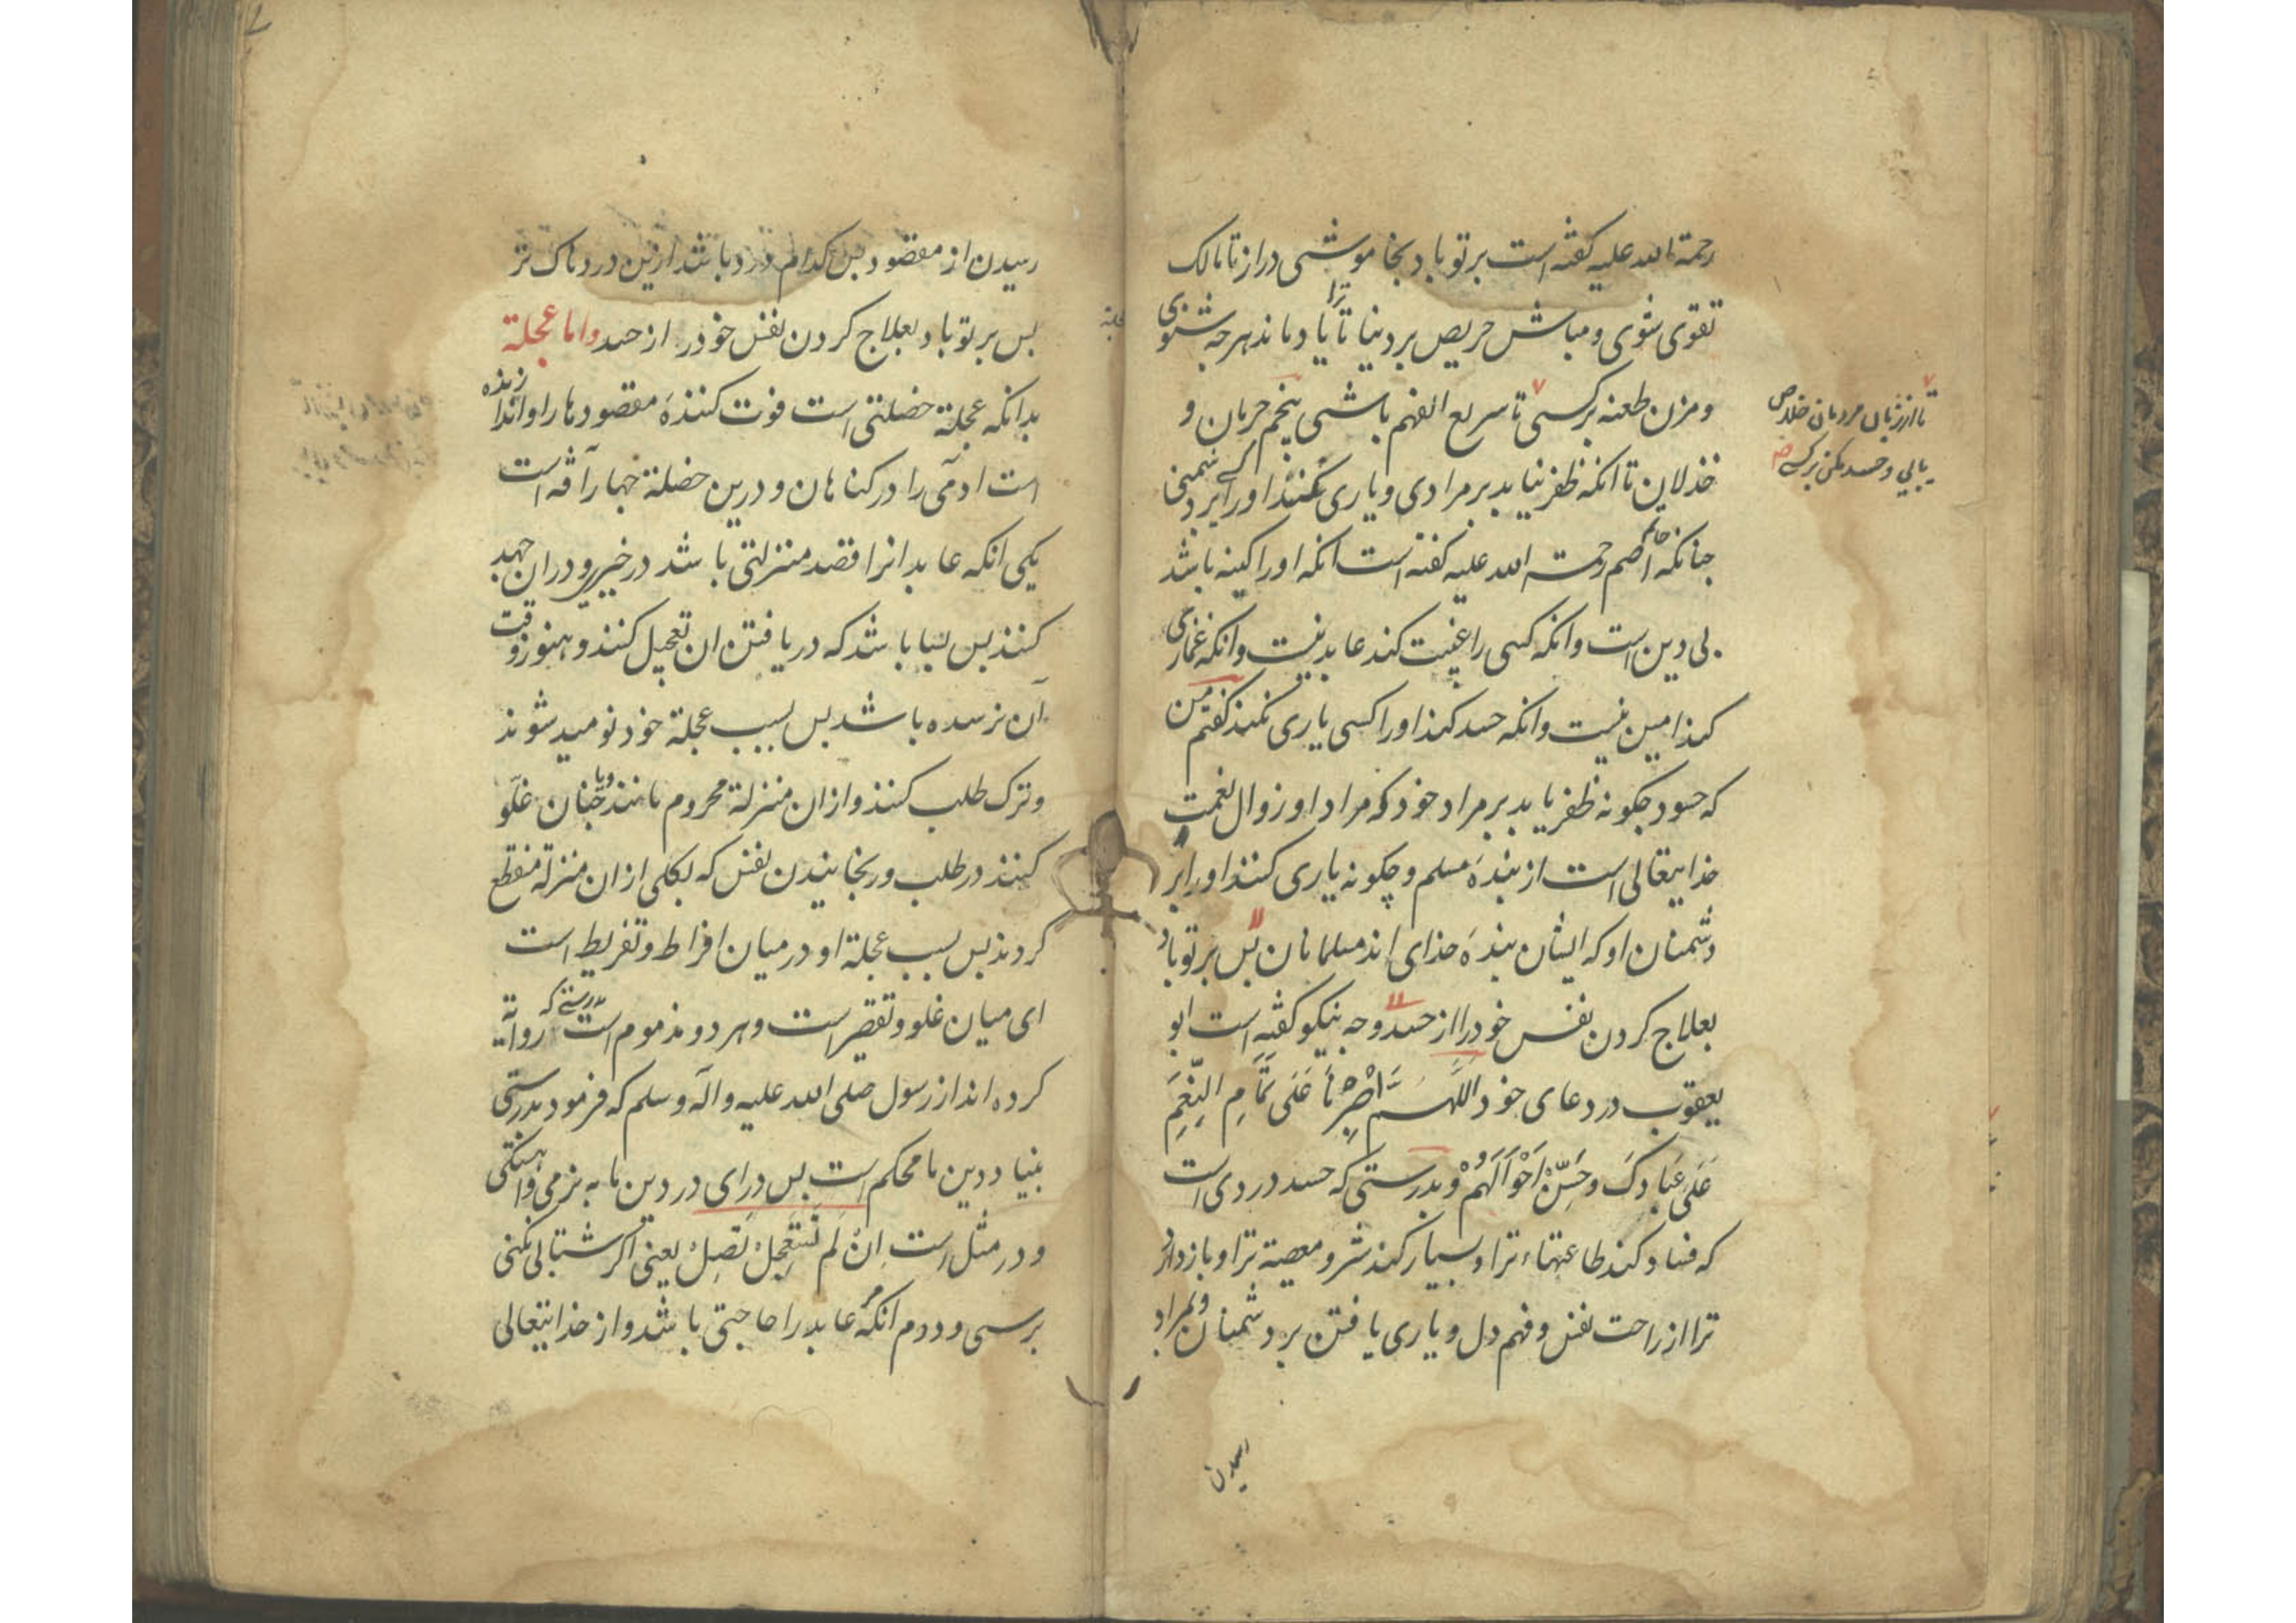 رحمة الله علیه کفته است برتو باد بخاموشی دراز تا مالک
تقوی شوی و مباش حریص بر دنیا تا ترا یاد ماند هرجه شنوی
و مزن طعنه بر کسی تا سریع الفهم باشی پنجم حرمان و
تا از زبان مردمان خلاص
یابی و حسد مکن بر کسی صح
خذلان تا انکه ظفر نیابد بر مرادی و یاری نکنند او را بر دشمنی
جنانکه حاتم اصم رحمة الله علیه کفته است انکه او را کینه باشد
بی دین است و انکه کسی را غیبت کند عابد نیست و انکه غمازی
کند امین نیست و انکه حسد کند او را کسی یاری نکند کفتم من
که حسود جکونه ظفر یابد بر مراد خود که مراد او زوال نعمت
خدایتعالی است از بندهٔ مسلم و چکونه یاری کنند او را بر
دشمنان او که ایشان بندهٔ خدای اند مسلمانان بس برتو باد
بعلاج کردن نفس خود را از حسد وجه نیکو کفته است ابو
یعقوب در دعای خود اللَّهم اصْبِرْنَا عَلَى تَمَامِ النِّعَمِ
عَلَى عِبَادِكَ وَحَسِّنْ اَحْوَالَهُمْ و بدرستی که حسد دردی است
که فساد کند طاعتهاء ترا و بسیار کند شر و معصیة ترا و باز دارد
ترا از راحت نفس و فهم دل و یاری یافتن بر دشمنان و بمراد
رسیدن از مقصود بس کدام درد باشد ازین دردناک تر
بس برتو باد بعلاج کردن نفس خود را از حسد واما عجلة
بدانکه عجلة خصلتی است فوت کنندهٔ مقصودها را و اندازنده
است ادمی را در کناهان و درین خصلة جهار آفه است
یکی انکه عابد انرا قصد منزلتی باشد در خیر و دران جهد
کنند بس بسا باشد که در یافتن ان تعجیل کنند و هنوز وقت
آن نرسده باشد بس بسبب عجلة خود نومید شوند
و ترک طلب کنند و ازان منزلة محروم مانند و یا جنان غلو
کنند در طلب و رنجانیدن نفس که بکلی ازان منزلة منقطع
کردند بس بسبب عجلة او در میان افراط و تفریط است
ای میان غلو و تقصیر است و هر دو مذموم است بدرستی که روایة
کرده اند از رسول صلی الله علیه وآله وسلم که فرمود بدرستی
بنیاد دین ما محکم است بس درای در دین ما به نرمی و اهستکی
و در مثل است اِنْ لَم تَسْتَعْجِلْ تَصِلْ یعنی اکر شتابی نکنی
برسی و دوم انکه مر عابد را حاجتی باشد و از خدایتعالی